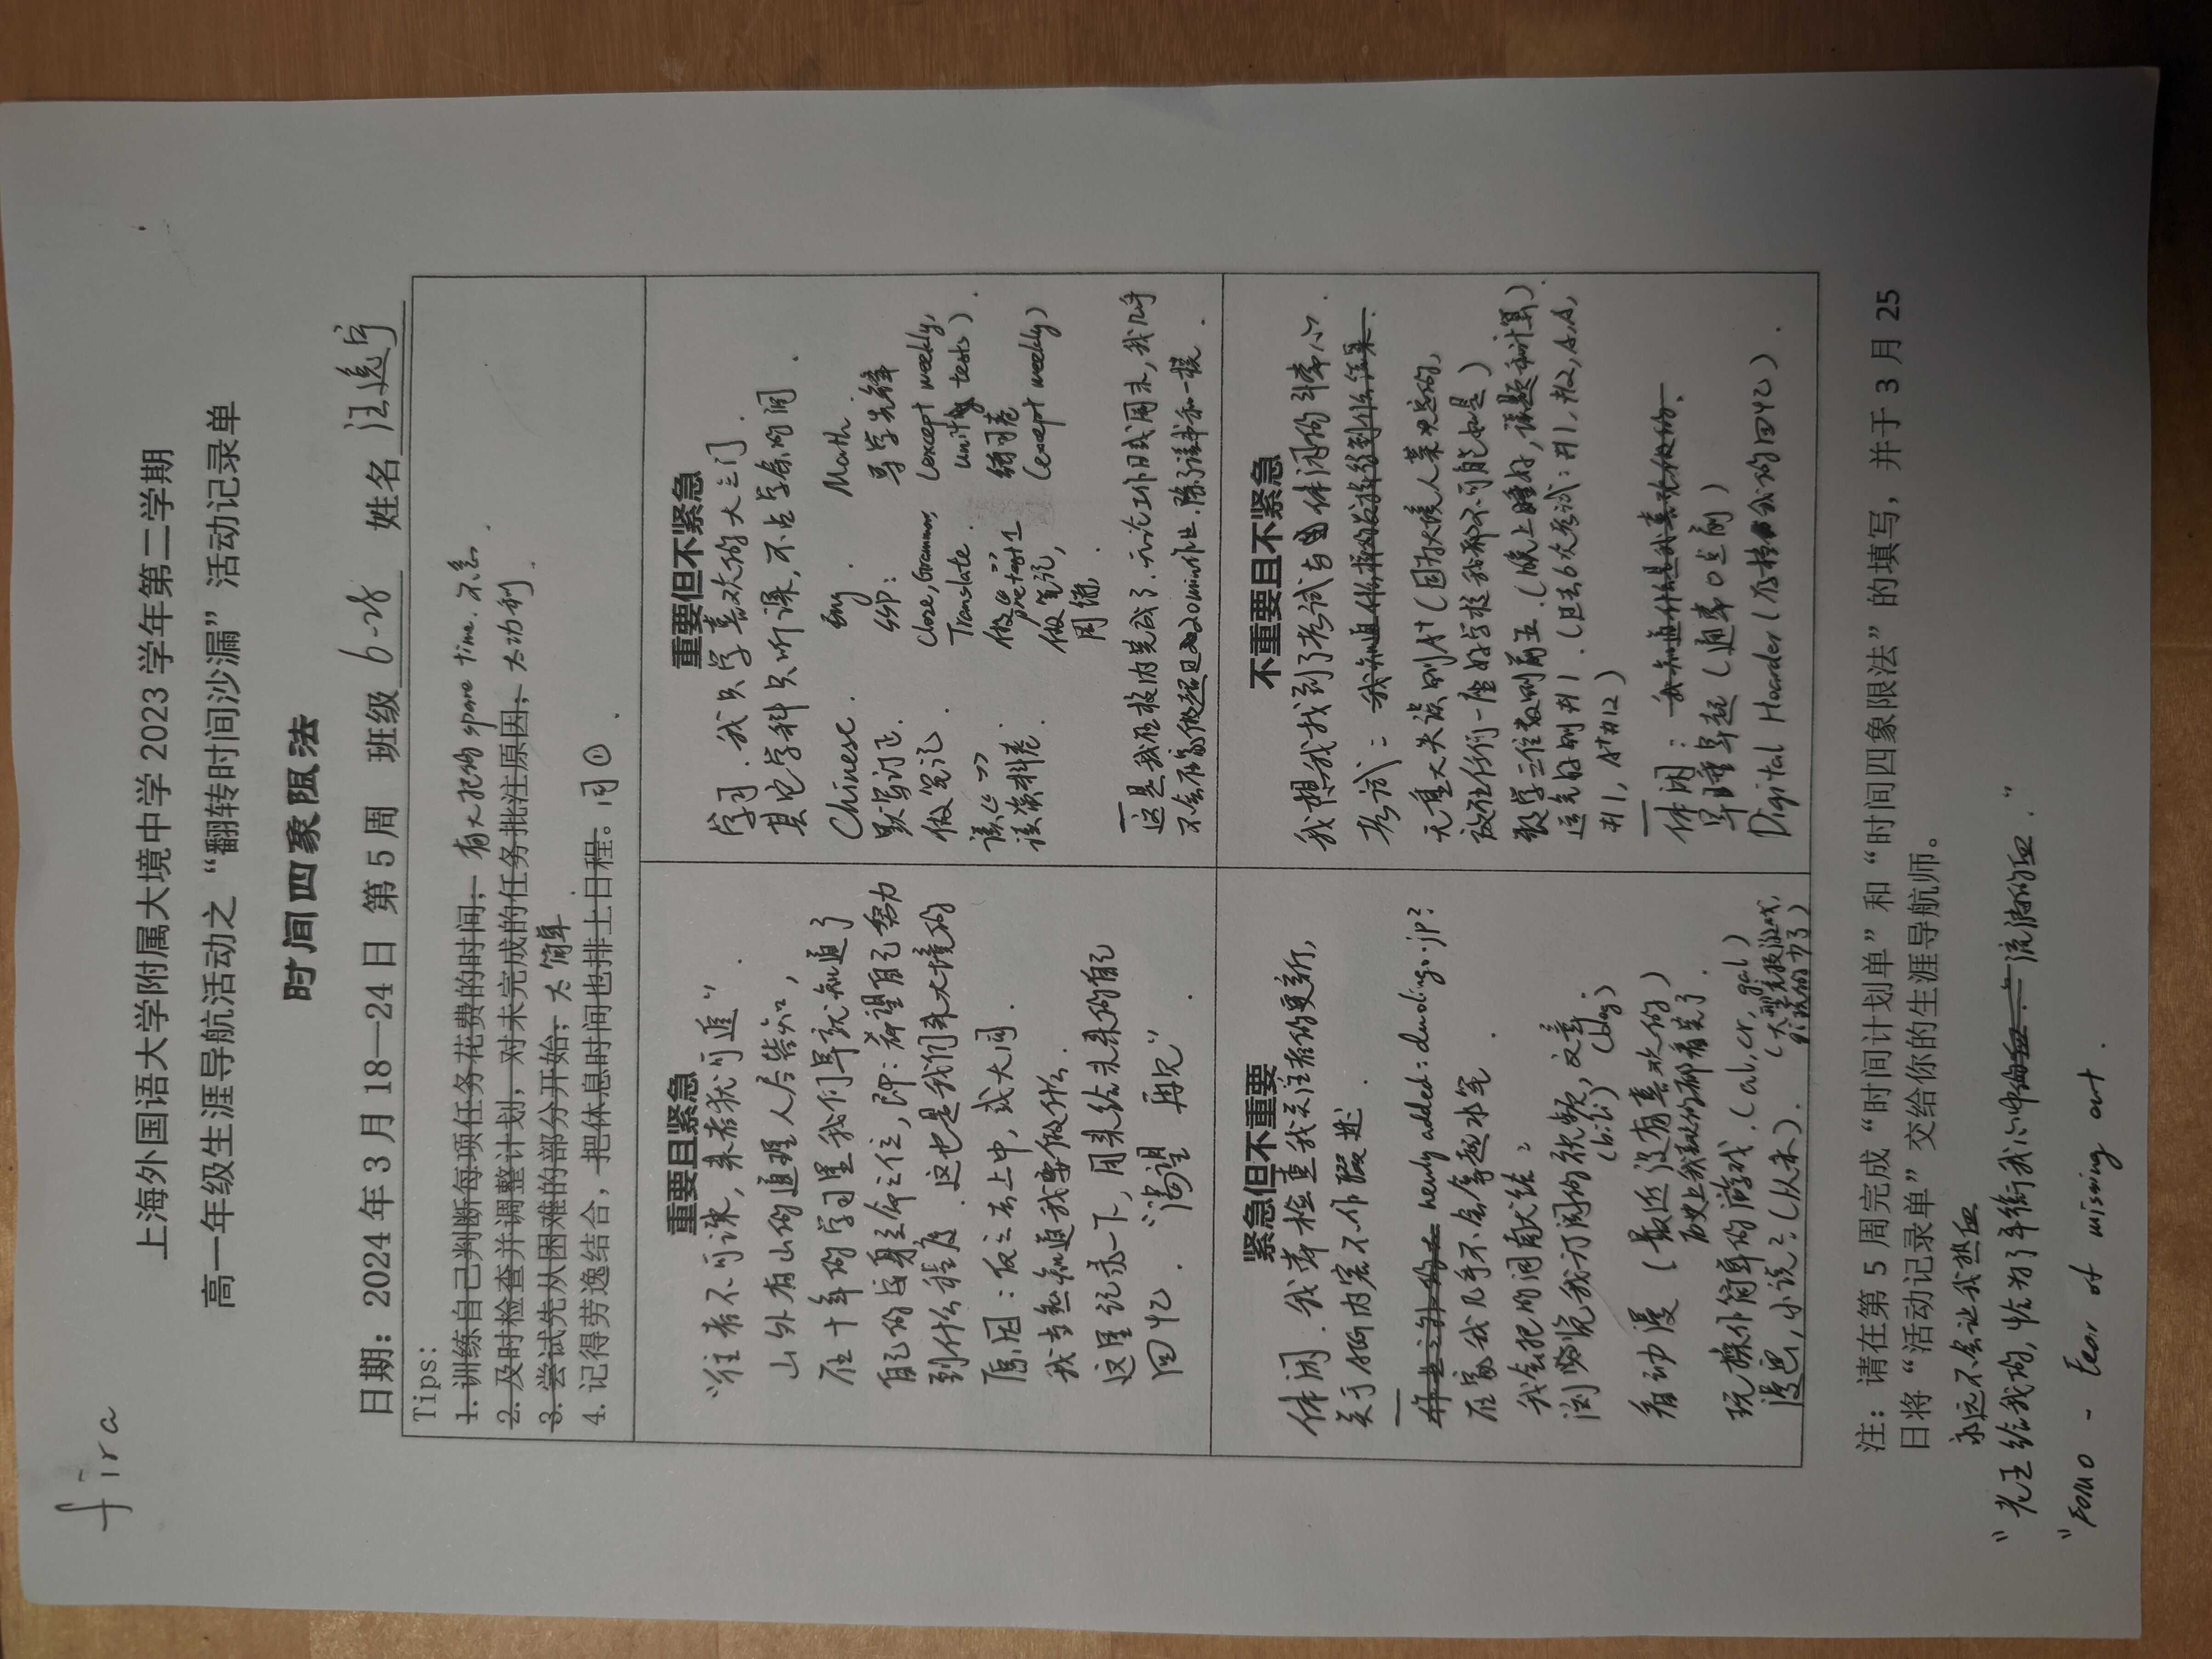 fira
上海外国语大学附属大境中学 2023 学年第二学期
高一年级生涯导航活动之“翻转时间沙漏”活动记录单
时间四象限法
日期：2024 年 3 月 18—24 日 第 5 周 班级 6-28 姓名 汪逸宁
Tips:
1. 训练自己判断每项任务花费的时间； 有大把的 spare time. 不急.
2. 及时检查并调整计划，对未完成的任务批注原因； 太功利.
3. 尝试先从困难的部分开始； 太简单.
4. 记得劳逸结合，把休息时间也排上日程。 同①.
重要且紧急
“往者不可谏, 来者犹可追”.
山外有山的道理人尽皆知,
在十年的学习里我们早就知道了
自己的安身立命之位, 即: 希望自己努力
到什么程度. 这也是我们来大境的
原因: 反之去上中, 或大同.
我当然知道我要做什么.
这里记录一下, 用来给未来的自己
回忆. “渴望 再见”.
重要但不紧急
学习. 我只学喜欢的大三门.
其它学科只听课, 不占学余时间.
Chinese. Eng. Math.
默写订正. SSP: 导学先锋
做笔记. Cloze, Grammar, (except weekly,
Translate. unit tests).
读《 》. 做《 》 练习卷
读资料卷. pretest 1 (except weekly)
做笔记,
周练.
这是我在校内完成了. 无论工作日或周末, 我几乎
不会在家做超过20min作业. 除了读书和一模.
紧急但不重要
休闲. 我常检查我关注者的更新,
关于ACG内容不作缀述.
作业之外的 newly added: duolingo.jp?
在家我几乎不会拿起水笔.
我会把时间献给:
浏览我订阅的视频, 文章.
(bili) (blog)
看动漫 (最近没有喜欢的)
历史上我喜欢的都看完了.
玩操作简单的游戏. (al, cr, gal)
漫画, 小说? (从未). (大型竞技游戏,
玩的少了)
不重要且不紧急
我想我找到了考试与休闲的平常心.
考试: 我知道什么样的发挥得到什么结果.
无重大失误则A+ (因为大境人菜决定的,
放在任何一座好学校我都不可能如是)
数学三位数则前五. (晚上睡好, 读题和计算)
运气好则#1. (过去6次考试: #1, #2, A, A,
#1, A+#12)
休闲: 我知道什么是我喜欢做的.
早睡早起 (通常0点前)
Digital Hoarder (存档我的回忆).
注：请在第 5 周完成“时间计划单”和“时间四象限法”的填写，并于 3 月 25
日将“活动记录单”交给你的生涯导航师。
永远不会让我热血
“老王给我的, 恰为了平衡我心中的血.” 流淌的血.”
“FOMO - Fear of missing out.